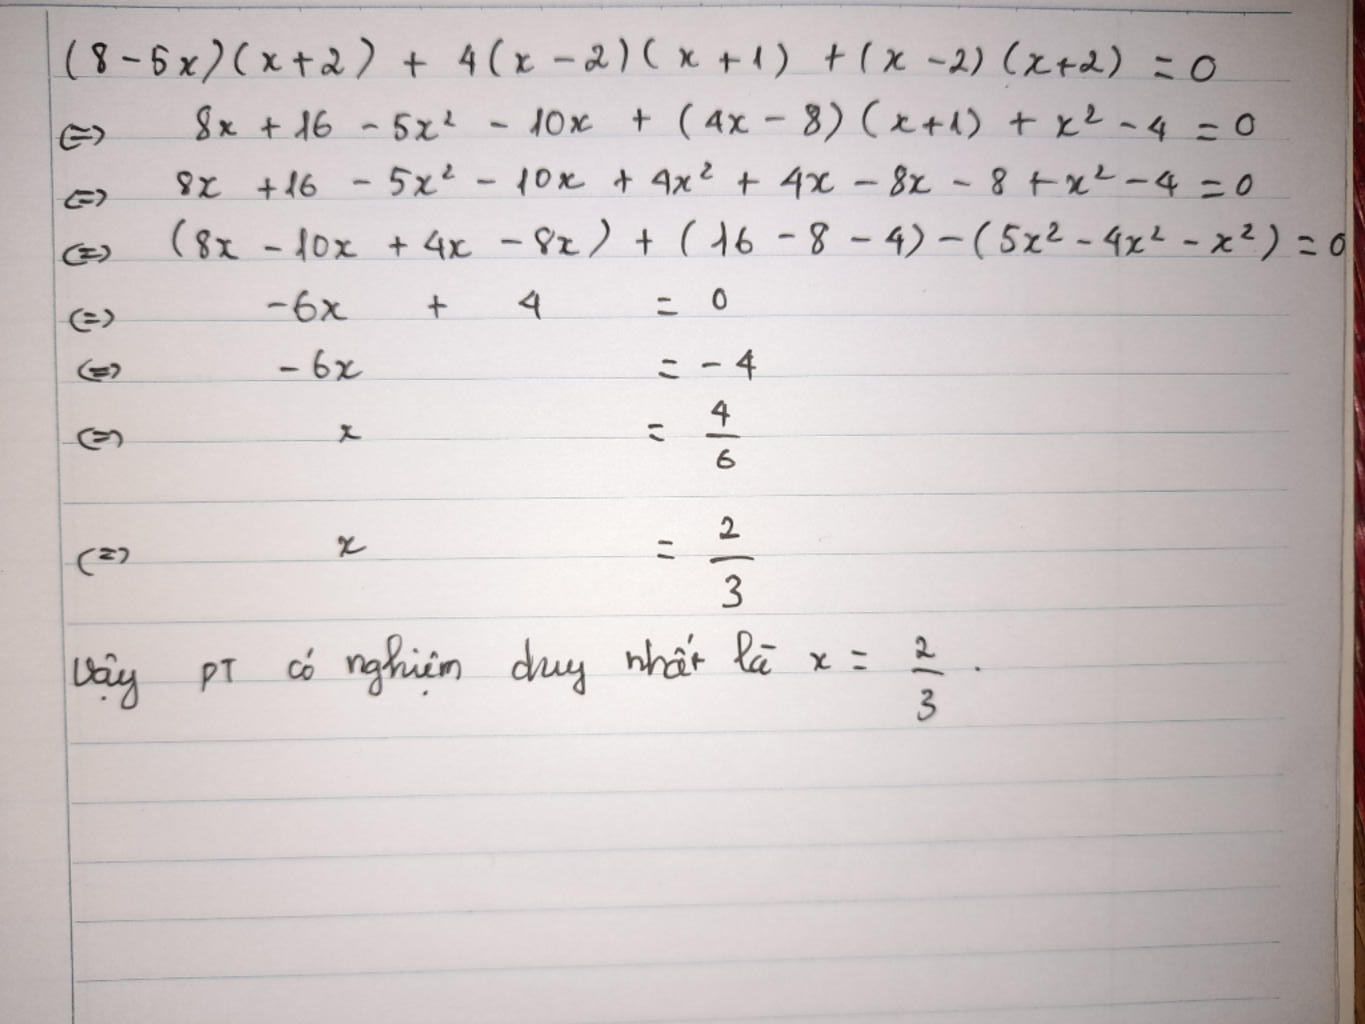 (8-5x)(x+2) + 4(x-2)(x+1) + (x-2)(x+2) = 0
(=) 8x + 16 - 5x² - 10x + (4x - 8)(x+1) + x² - 4 = 0
(=) 8x + 16 - 5x² - 10x + 4x² + 4x - 8x - 8 + x² - 4 = 0
(=) (8x - 10x + 4x - 8x) + (16 - 8 - 4) - (5x² - 4x² - x²) = 0
(=) -6x + 4 = 0
(=) -6x = -4
(=) x = 4/6
(=) x = 2/3
Vậy PT có nghiệm duy nhất là x = 2/3.